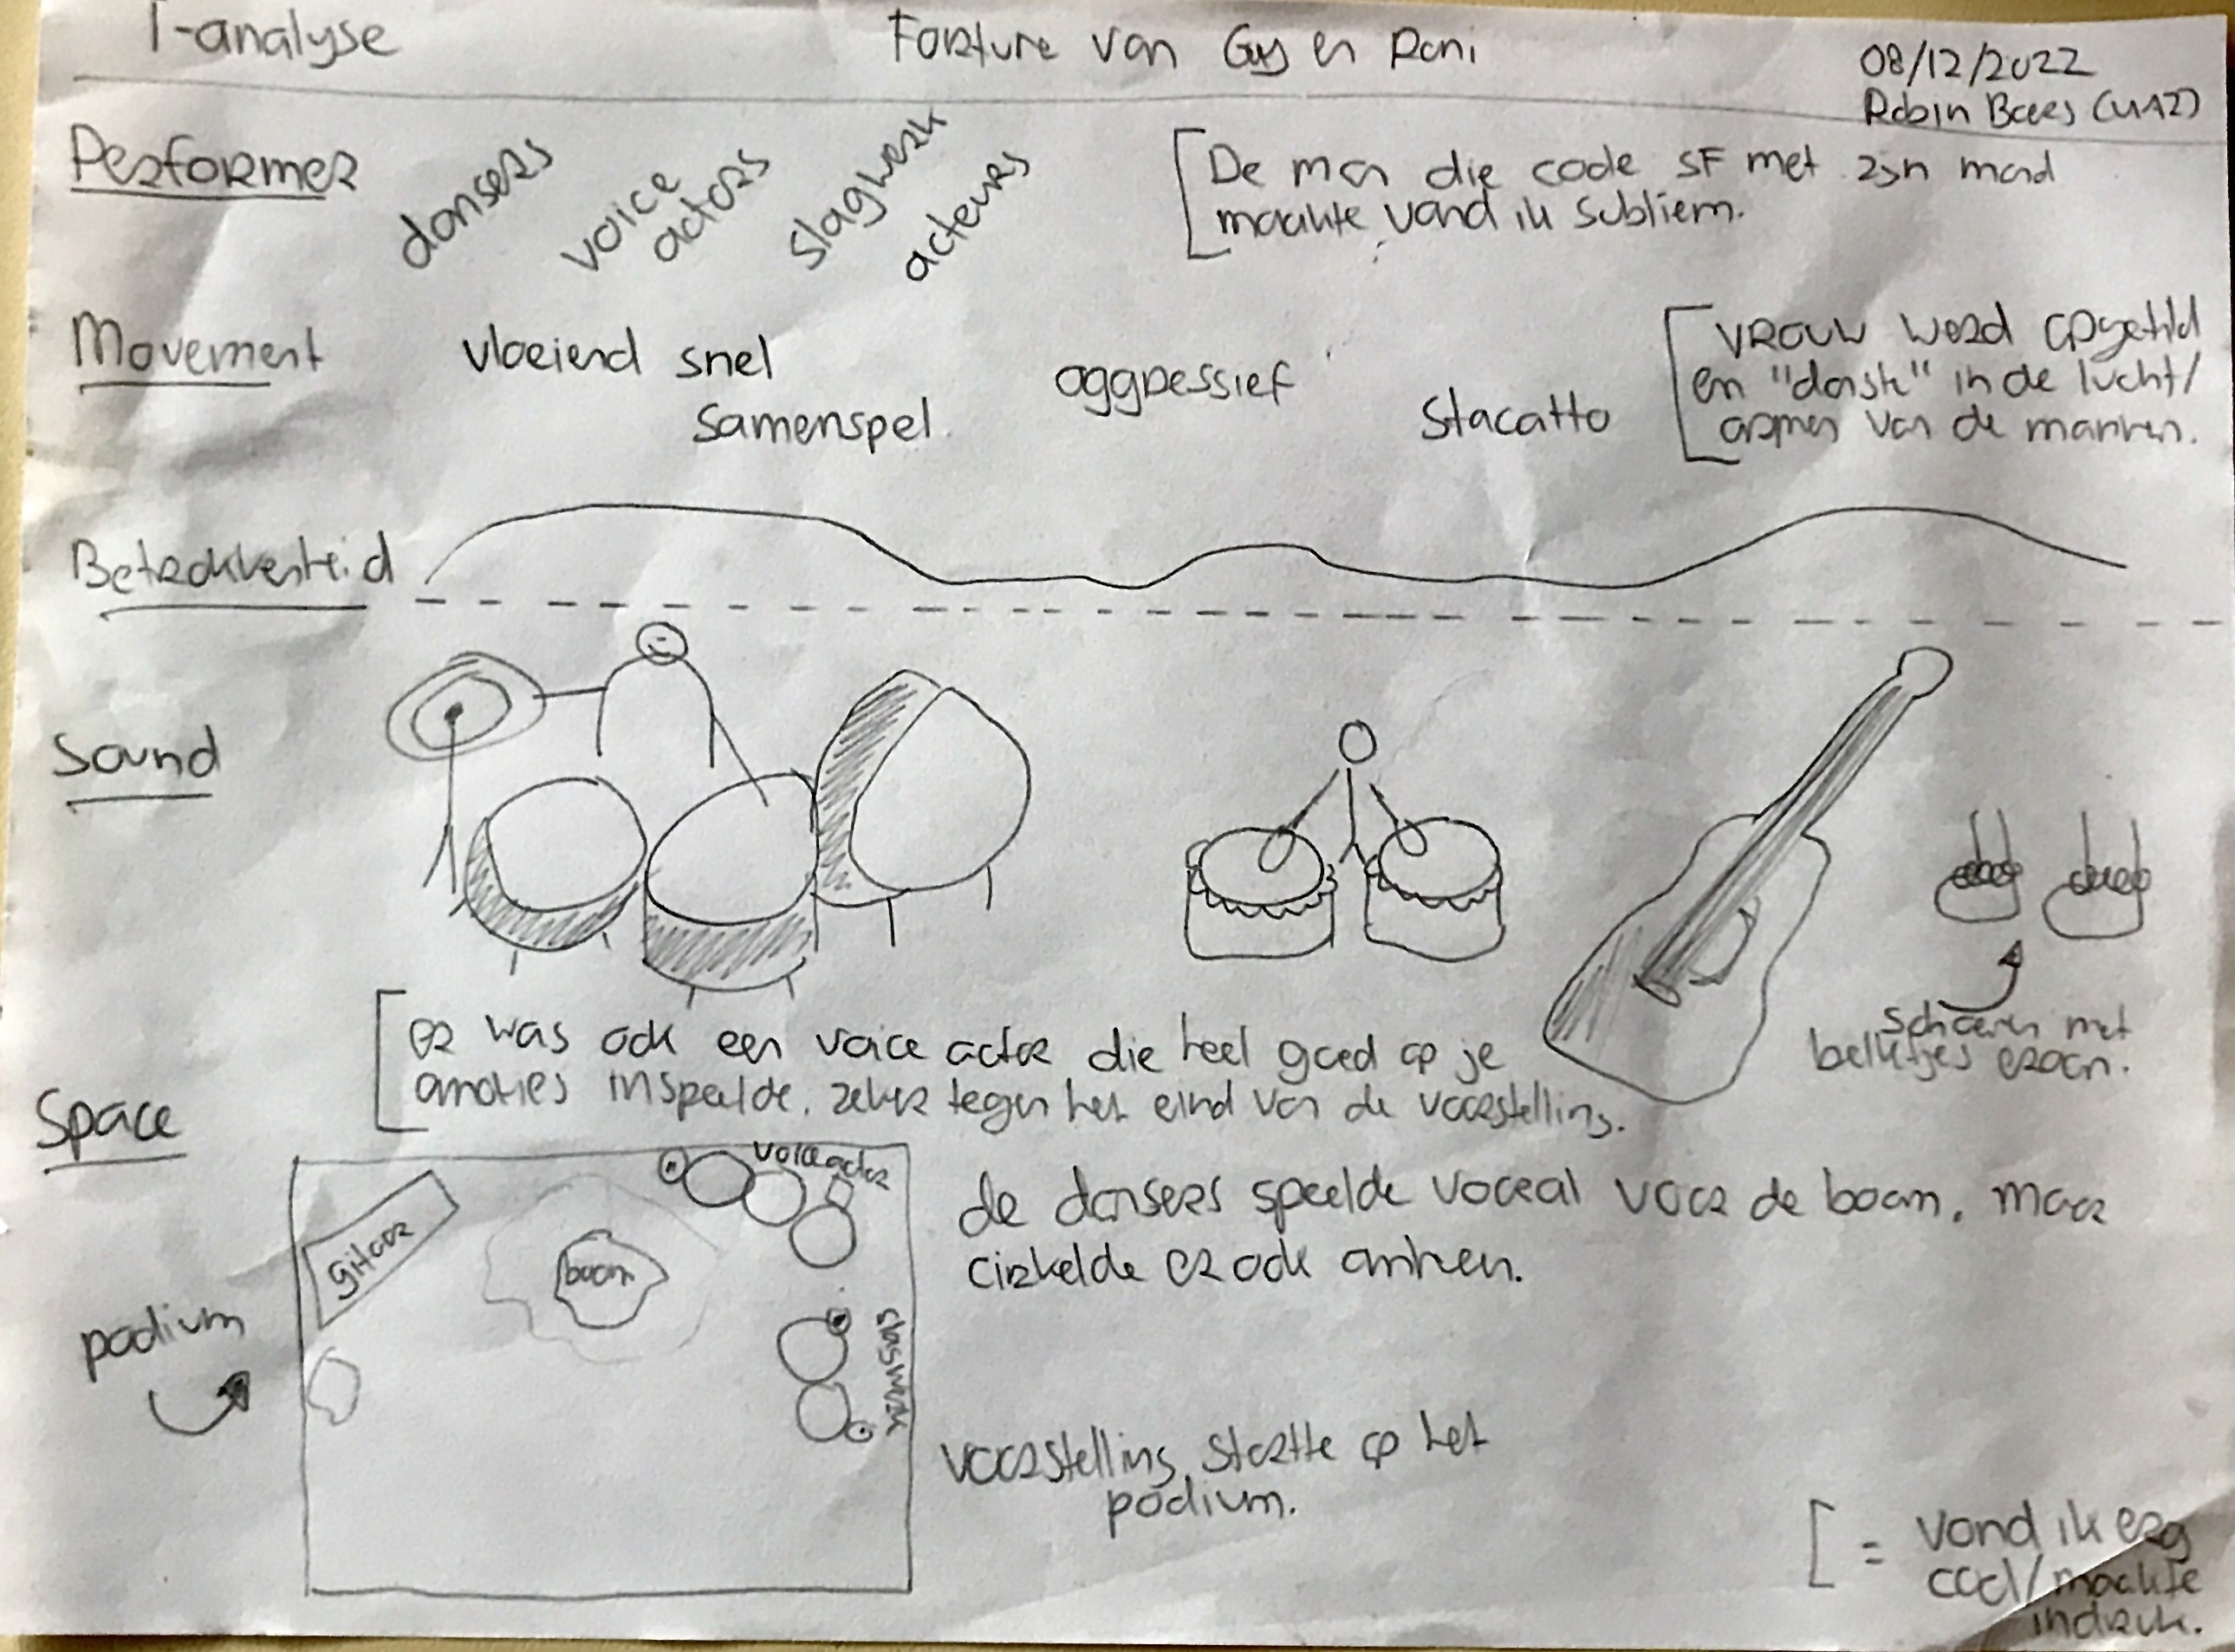 T-analyse
Forture van Guy en Roni
08/12/2022
Robin Baers (4A2)
Performer
dansers
voice
actors
slagwerk
acteurs
[De man die code SF met zijn mond
maakte vond ik subliem.
Movement
vloeiend snel
samenspel.
aggressief
stacatto
[vrouw werd opgetild
en "danste" in de lucht/
armen van de mannen.
Betrokkenheid
Sound
schoenen met
belletjes eraan.
[er was ook een voice actor die heel goed op je
emoties inspeelde. zeker tegen het eind van de voorstelling.
Space
voice actor
gitaar
boom
slagwerk
podium
de dansers speelde vooral voor de boom, maar
cirkelde er ook omheen.
voorstelling startte op het
podium.
[ = vond ik erg
cool/maakte
indruk.